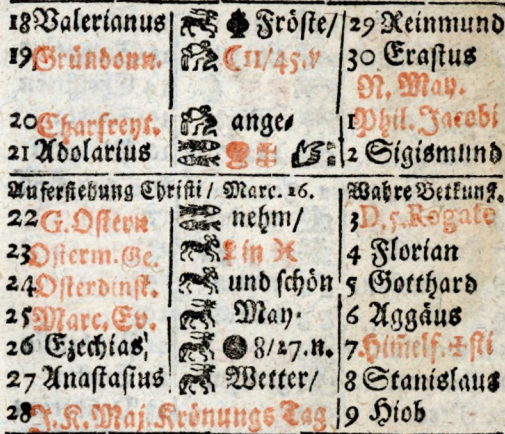 18 Valerianus Fröste/ 29 Reinmund
19 Gründonn. C 11/45.v 30 Erastus
N. May.
20 Charfreyt. ange⸗ 1 Phil. Jacobi
21 Adolarius 2 Sigismund
Auferstehung Christi/ Marc. 16. Wahre Betkunst.
22 G. Ostern nehm/ 3 D. 5. Rogate
23 Osterm. Ge. in 4 Florian
24 Osterdinst. und schön 5 Gotthard
25 Marc. Ev. May⸗ 6 Aggäus
26 Ezechias 8/27.n. 7 Him̃elf. ☩sti
27 Anastasius Wetter/ 8 Stanislaus
28 J. K. Maj. Krönungs Tag 9 Hiob